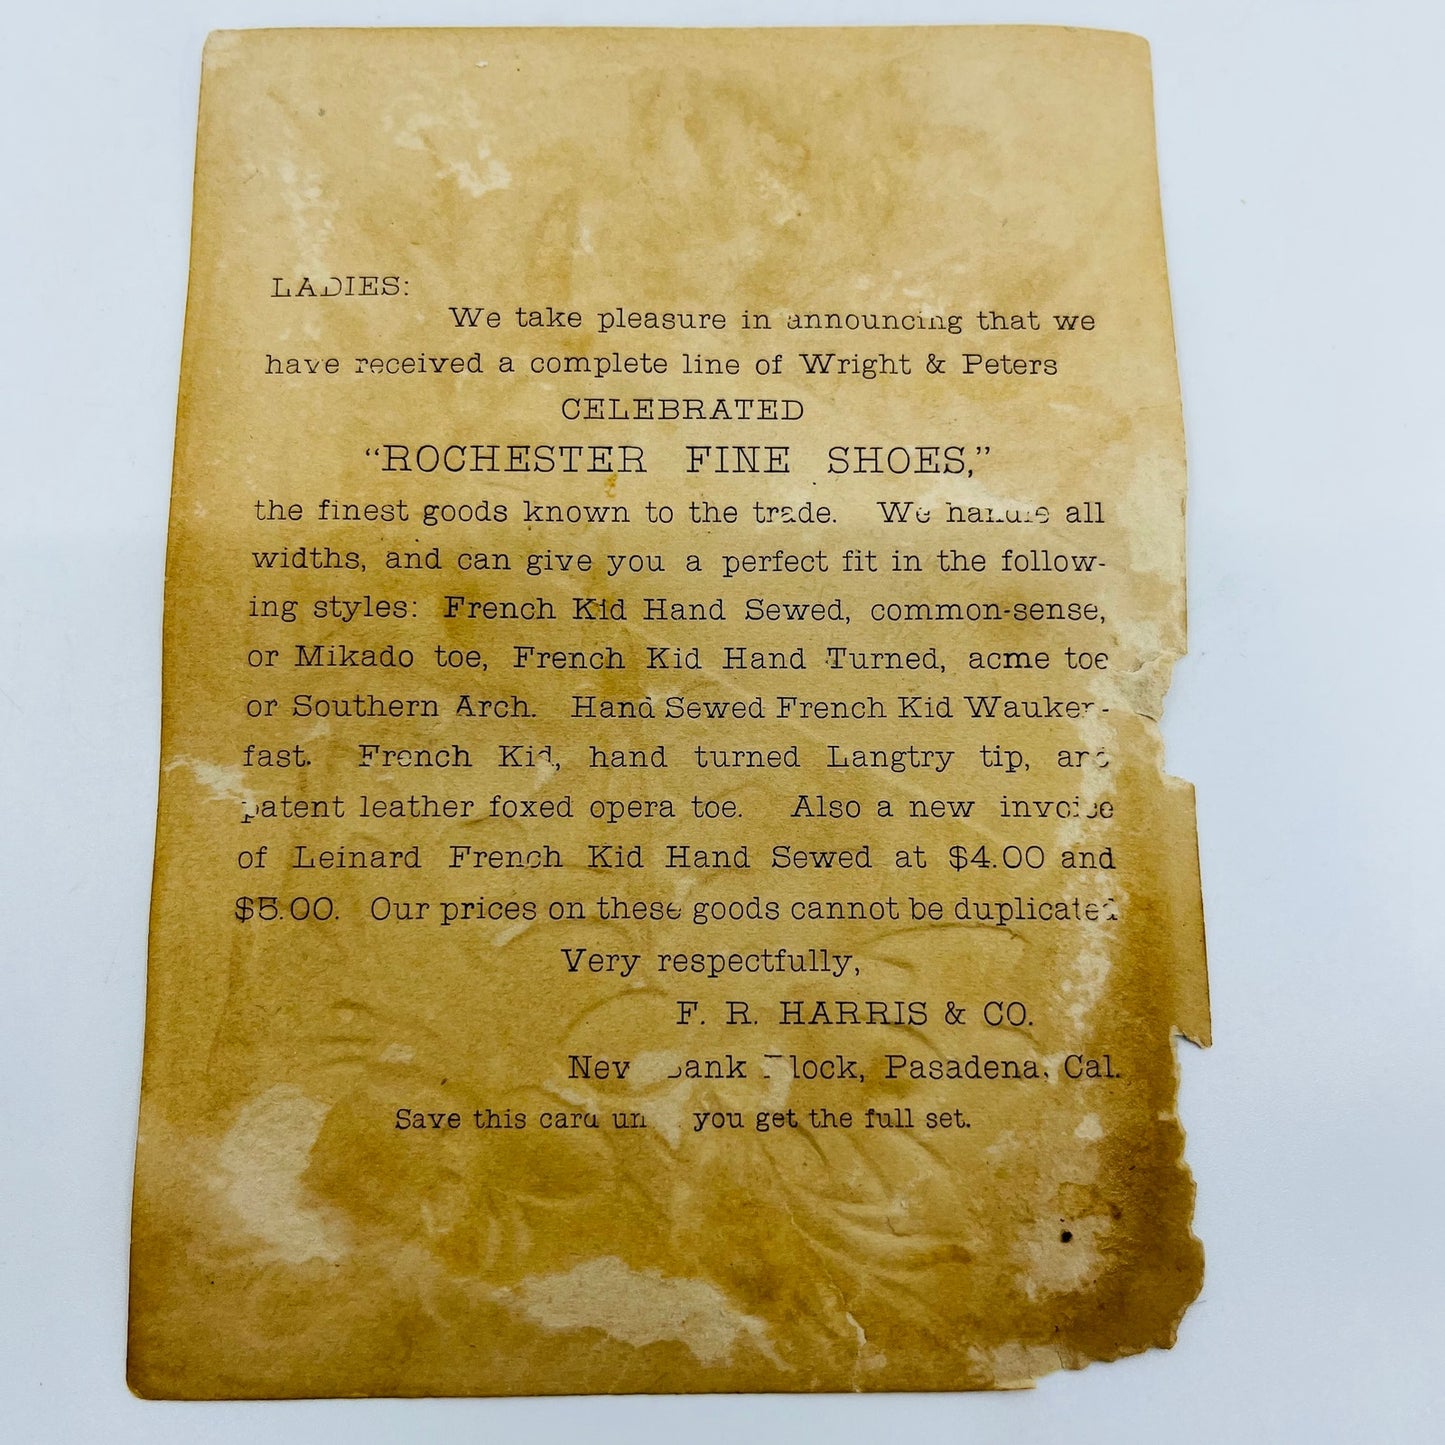 LADIES:
We take pleasure in announcing that we
have received a complete line of Wright & Peters
CELEBRATED
“ROCHESTER FINE SHOES,”
the finest goods known to the trade. We handle all
widths, and can give you a perfect fit in the follow-
ing styles: French Kid Hand Sewed, common-sense,
or Mikado toe, French Kid Hand Turned, acme toe
or Southern Arch. Hand Sewed French Kid Wauken-
fast. French Kid, hand turned Langtry tip, and
patent leather foxed opera toe. Also a new invoice
of Leinard French Kid Hand Sewed at $4.00 and
$5.00. Our prices on these goods cannot be duplicated
Very respectfully,
F. R. HARRIS & CO.
New Bank Block, Pasadena, Cal.
Save this card un you get the full set.